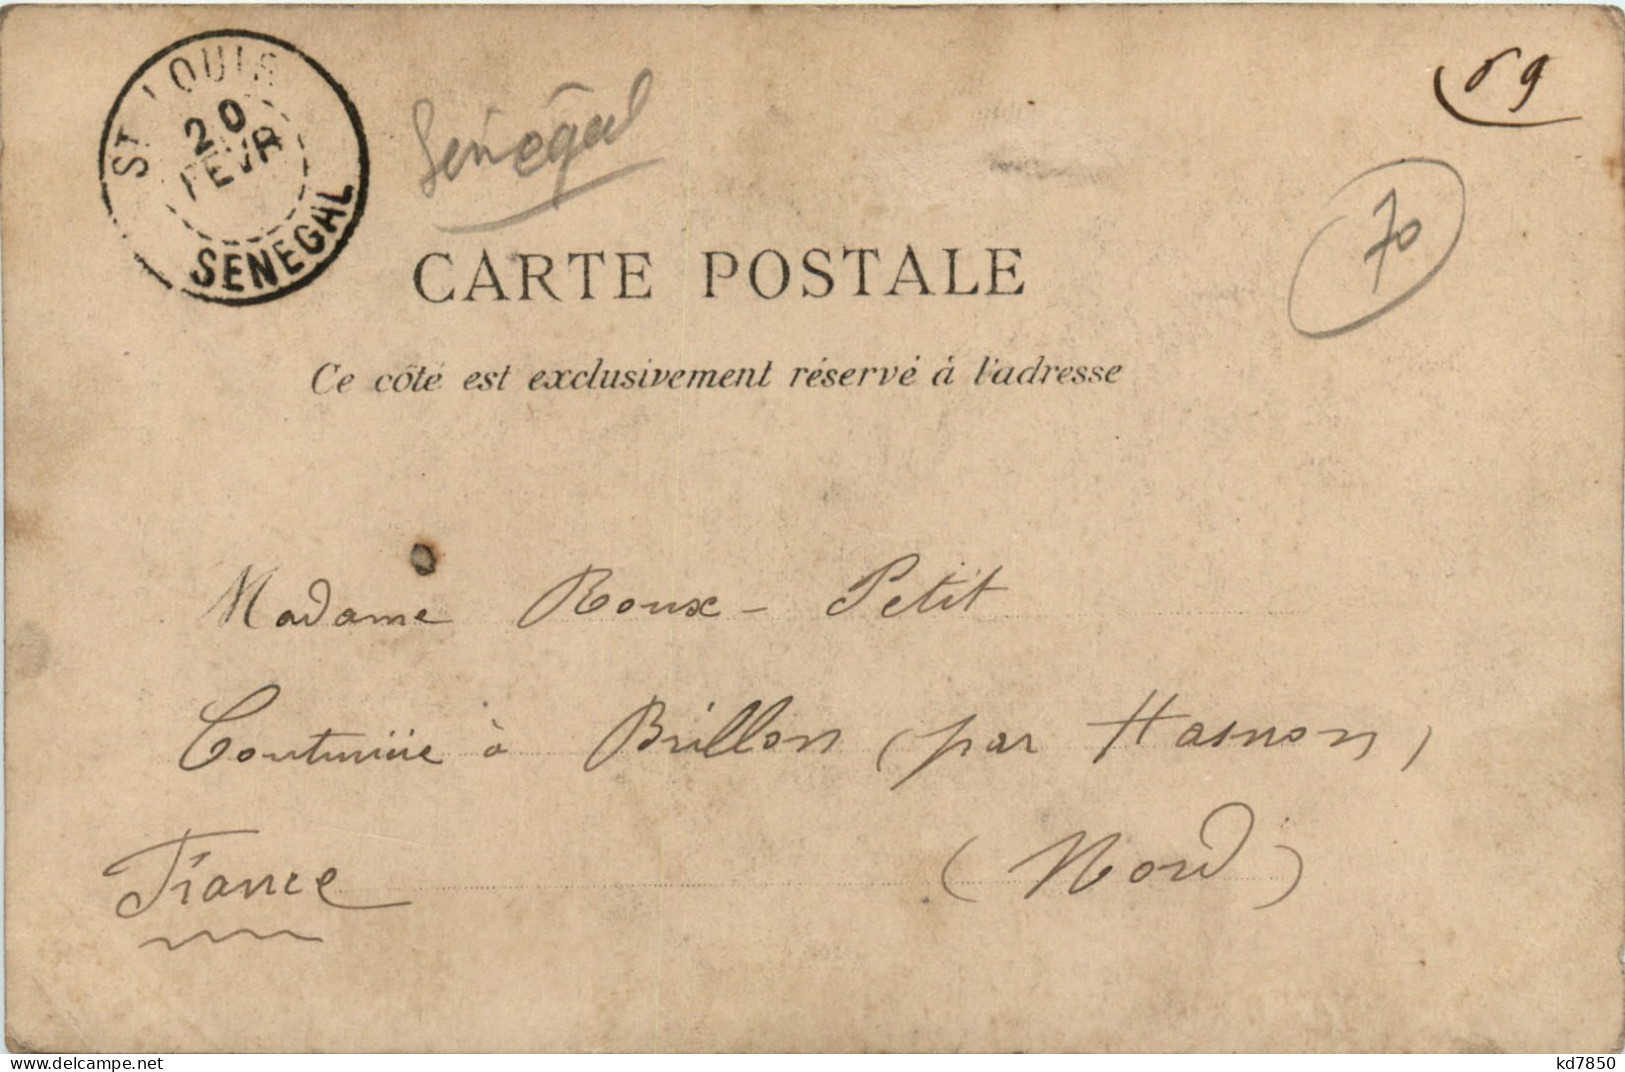 ST LOUIS
20
FEVR
SENEGAL
Sénégal
69
70
CARTE POSTALE
Ce côté est exclusivement réservé à l'adresse
Madame Roux - Petit
Couturière à Brillon (par Hasnon)
France (Nord)
www.delcampe.net
kd7850